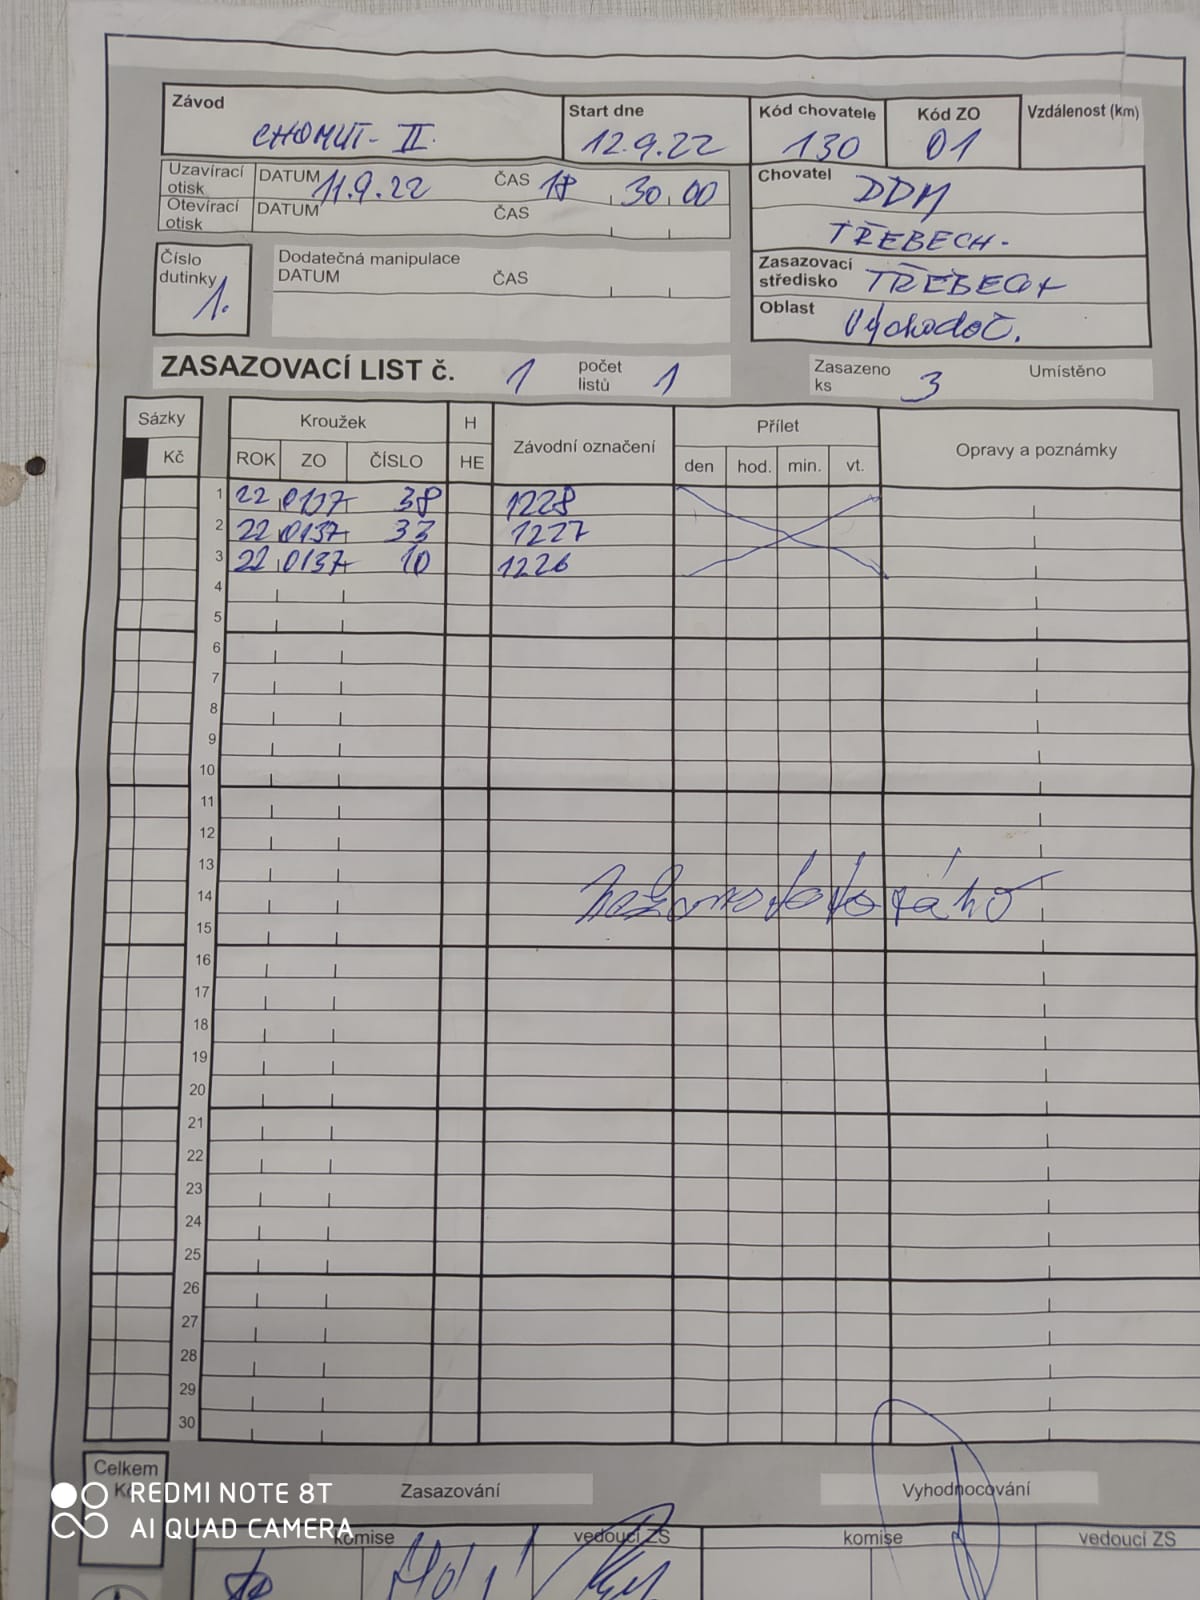 Závod
CHOMUT- II.
Start dne
12.9.22
Kód chovatele
130
Kód ZO
01
Vzdálenost (km)
Uzavírací otisk DATUM 11.9.22 ČAS 18 30 00
Otevírací otisk DATUM ČAS
Chovatel DDM
TŘEBECH-
Zasazovací středisko TŘEBECH
Oblast Východoč.
Číslo dutinky 1.
Dodatečná manipulace
DATUM ČAS
ZASAZOVACÍ LIST č. 1 počet listů 1
Zasazeno ks 3 Umístěno
Sázky Kroužek H Závodní označení Přílet Opravy a poznámky
Kč ROK ZO ČÍSLO HE den hod. min. vt.
1 22 0137 38 1228
2 22 0137 33 1227
3 22 0137 10 1226
4
5
6
7
8
9
10
11
12
13
14
15
16
17
18
19
20
21
22
23
24
25
26
27
28
29
30
Celkem
Zasazování Vyhodnocování
komise vedoucí ZS komise vedoucí ZS
REDMI NOTE 8T
AI QUAD CAMERA